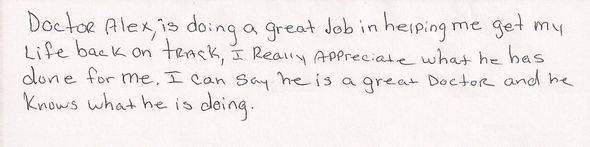 Doctor Alex, is doing a great Job in helping me get my
Life back on track, I Really Appreciate what he has
done for me. I can say he is a great Doctor and he
Knows what he is doing.